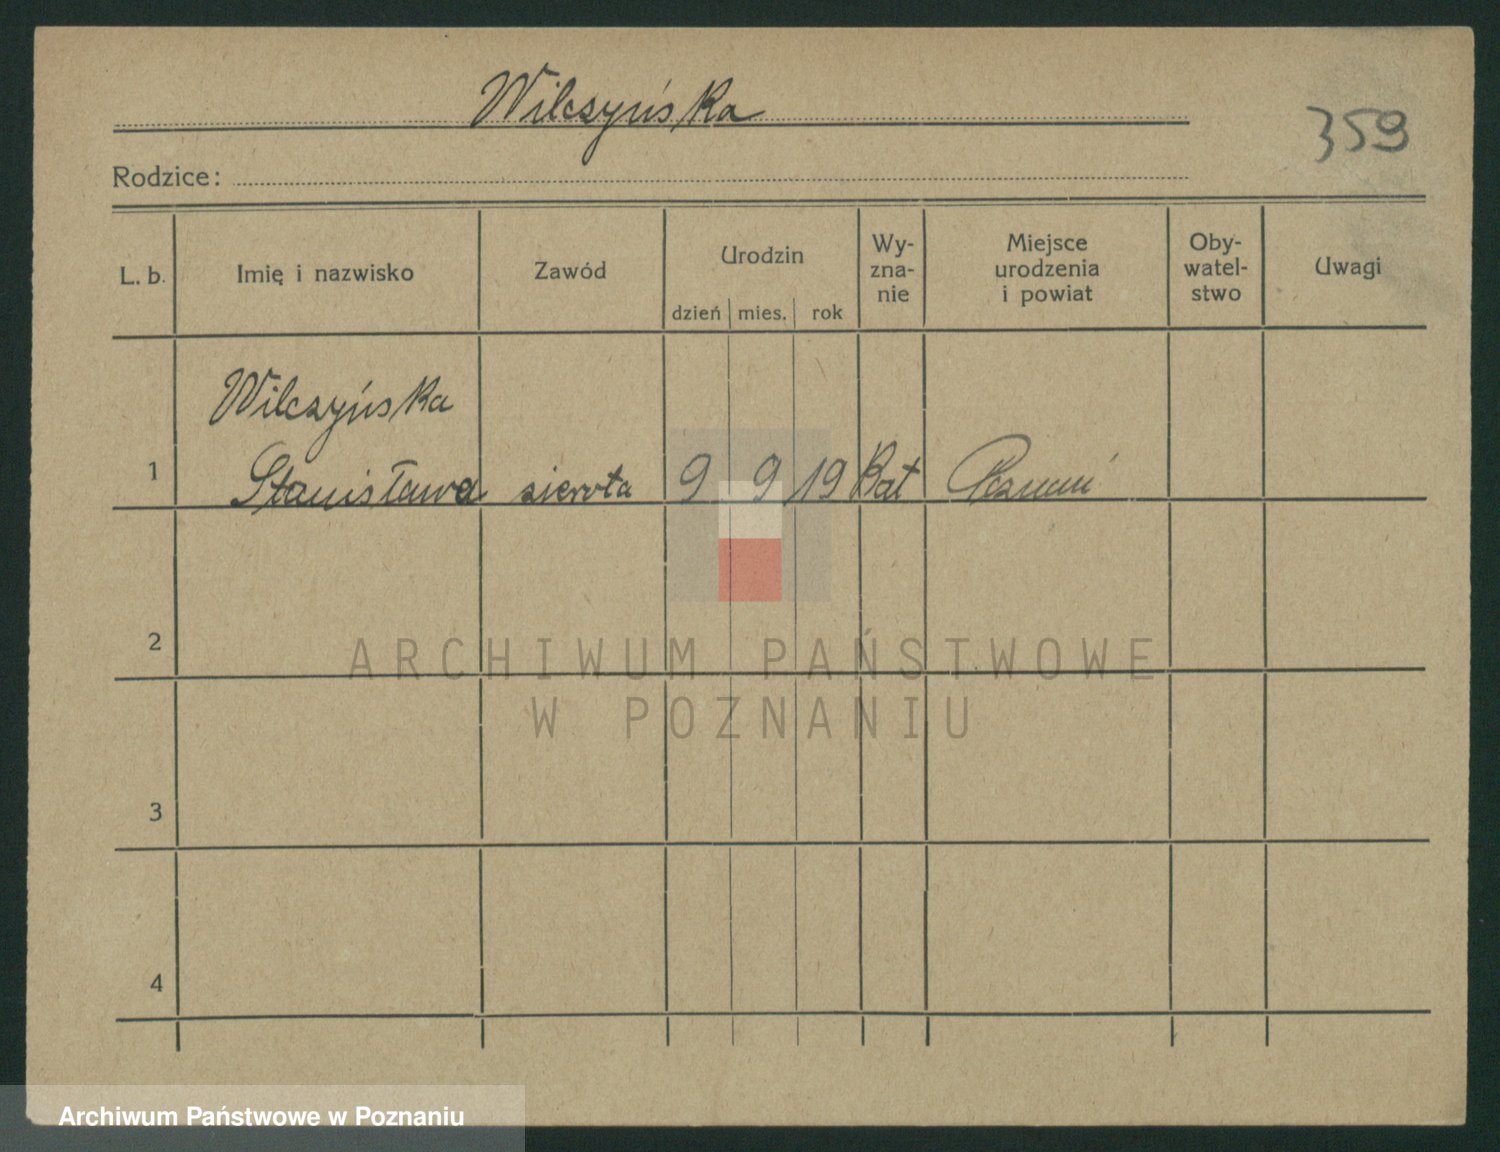 Wilczyńska
359
Rodzice:
L. b. Imię i nazwisko Zawód Urodzin dzień mies. rok Wy-zna-nie Miejsce urodzenia i powiat Oby-watel-stwo Uwagi
Wilczyńska
1 Stanisława sierota 9 9 19 Kat Poznań
2
3
4
ARCHIWUM PAŃSTWOWE
W POZNANIU
Archiwum Państwowe w Poznaniu